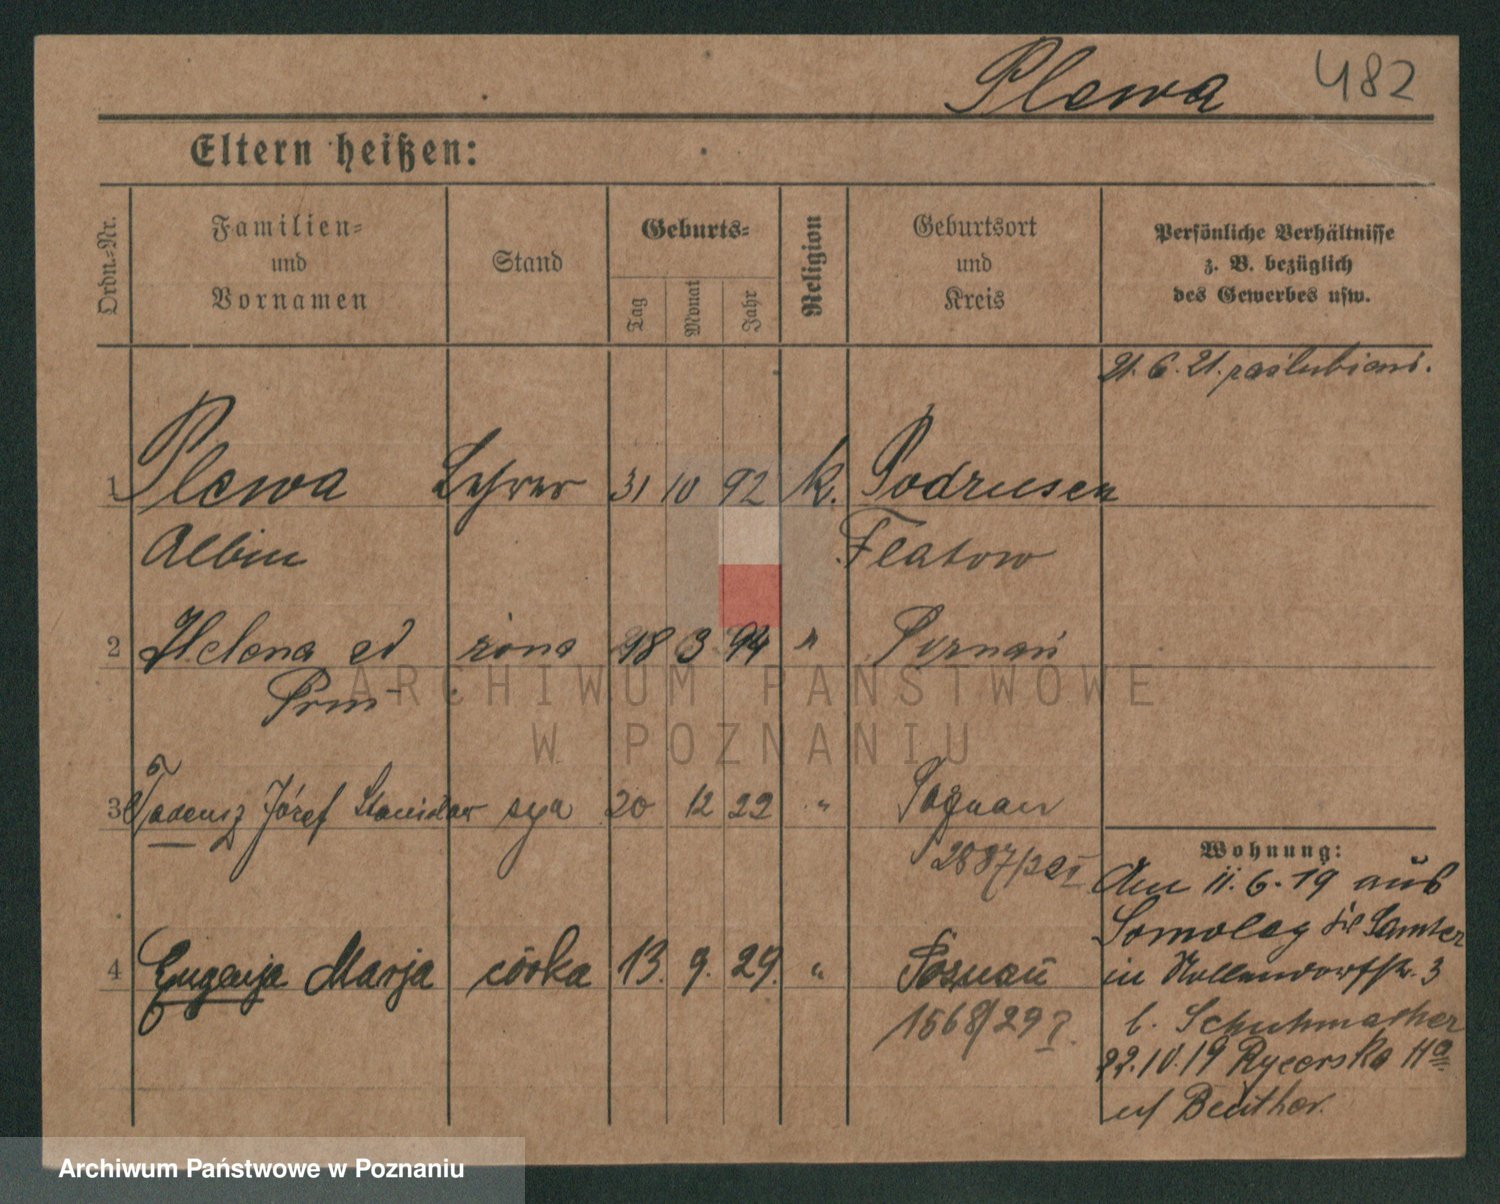 Plewa 482
Eltern heißen:
Ordn.-Nr.
Familien-
und
Vornamen
Stand
Geburts-
Tag
Monat
Jahr
Religion
Geburtsort
und
Kreis
Persönliche Verhältnisse
z. B. bezüglich
des Gewerbes usw.
21.6.21. zaślubieni.
1 Plewa Lehrer 31 10 92 k. Podrusen
Albin Flatow
2 Helena żona 18 3 94 " Poznań
3 Tadeusz Józef Stanisław syn 20 12 22 " Poznań
Wohnung:
Am 11.6.19 aus
4 Eugenja Marja córka 13. 9. 29. " Poznań
Samter
in Hollendorfstr. 3
1568/29 I.
b. Schuhmacher
22.10.19 Rycerska 11a
Beuther.
ARCHIWUM PAŃSTWOWE
W POZNANIU
Archiwum Państwowe w Poznaniu